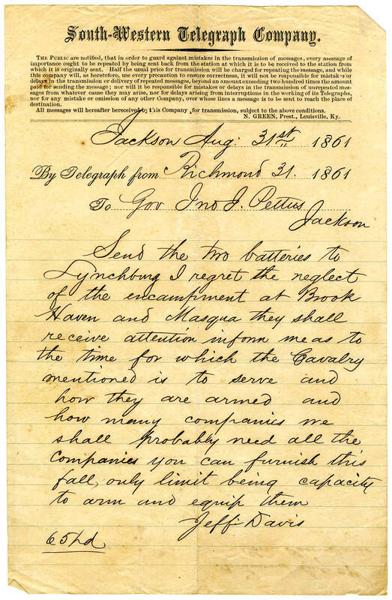 South-Western Telegraph Company.
THE PUBLIC are notified, that in order to guard against mistakes in the transmission of messages, every message of
importance ought to be repeated by being sent back from the station at which it is to be received to the station from
which it is originally sent. Half the usual price for transmission will be charged for repeating the message, and while
this company will, as heretofore, use every precaution to ensure correctness, it will not be responsible for mistakes or
delays in the transmission or delivery of repeated messages, beyond an amount exceeding two hundred times the amount
paid for sending the message; nor will it be responsible for mistakes or delays in the transmission of unrepeated mes-
sages from whatever cause they may arise, nor for delays arising from interruptions in the working of its Telegraphs,
nor for any mistake or omission of any other Company, over whose lines a message is to be sent to reach the place of
destination.
All messages will hereafter be received by this Company for transmission, subject to the above conditions.
N. GREEN, Prest., Louisville, Ky.
Jackson Aug: 31st 1861
By Telegraph from Richmond 31. 1861
To Gov Jno J. Pettus
Jackson
Send the two batteries to
Lynchburg I regret the neglect
of the encampment at Brook
Haven and Masqua they shall
receive attention inform me as to
the time for which the Cavalry
mentioned is to serve and
how they are armed and
how many companies we
shall probably need all the
Companies you can furnish this
fall, only limit being capacity
to arm and equip them
Jeff: Davis
65hd